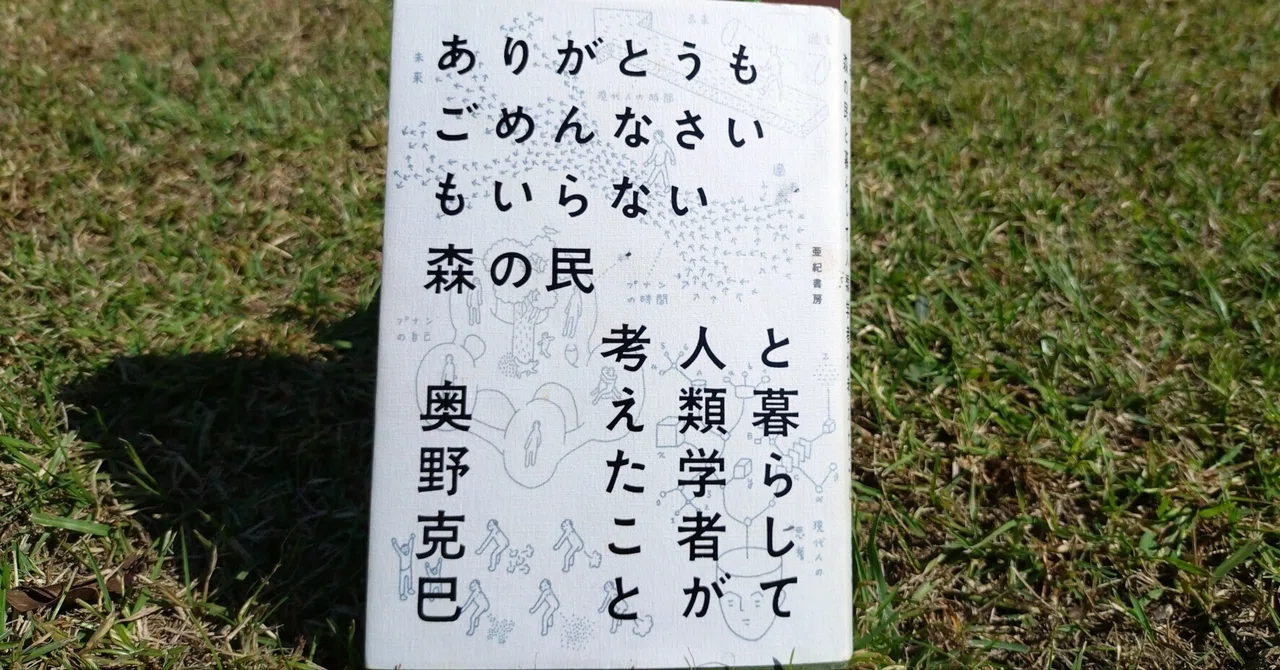 ありがとうも
ごめんなさい
もいらない
森の民
と暮らして
人類学者が
考えたこと
奥野克巳
亜紀書房
未来
現代人の時間
プナン
の時間
プナン
の自己
現代人の
思考